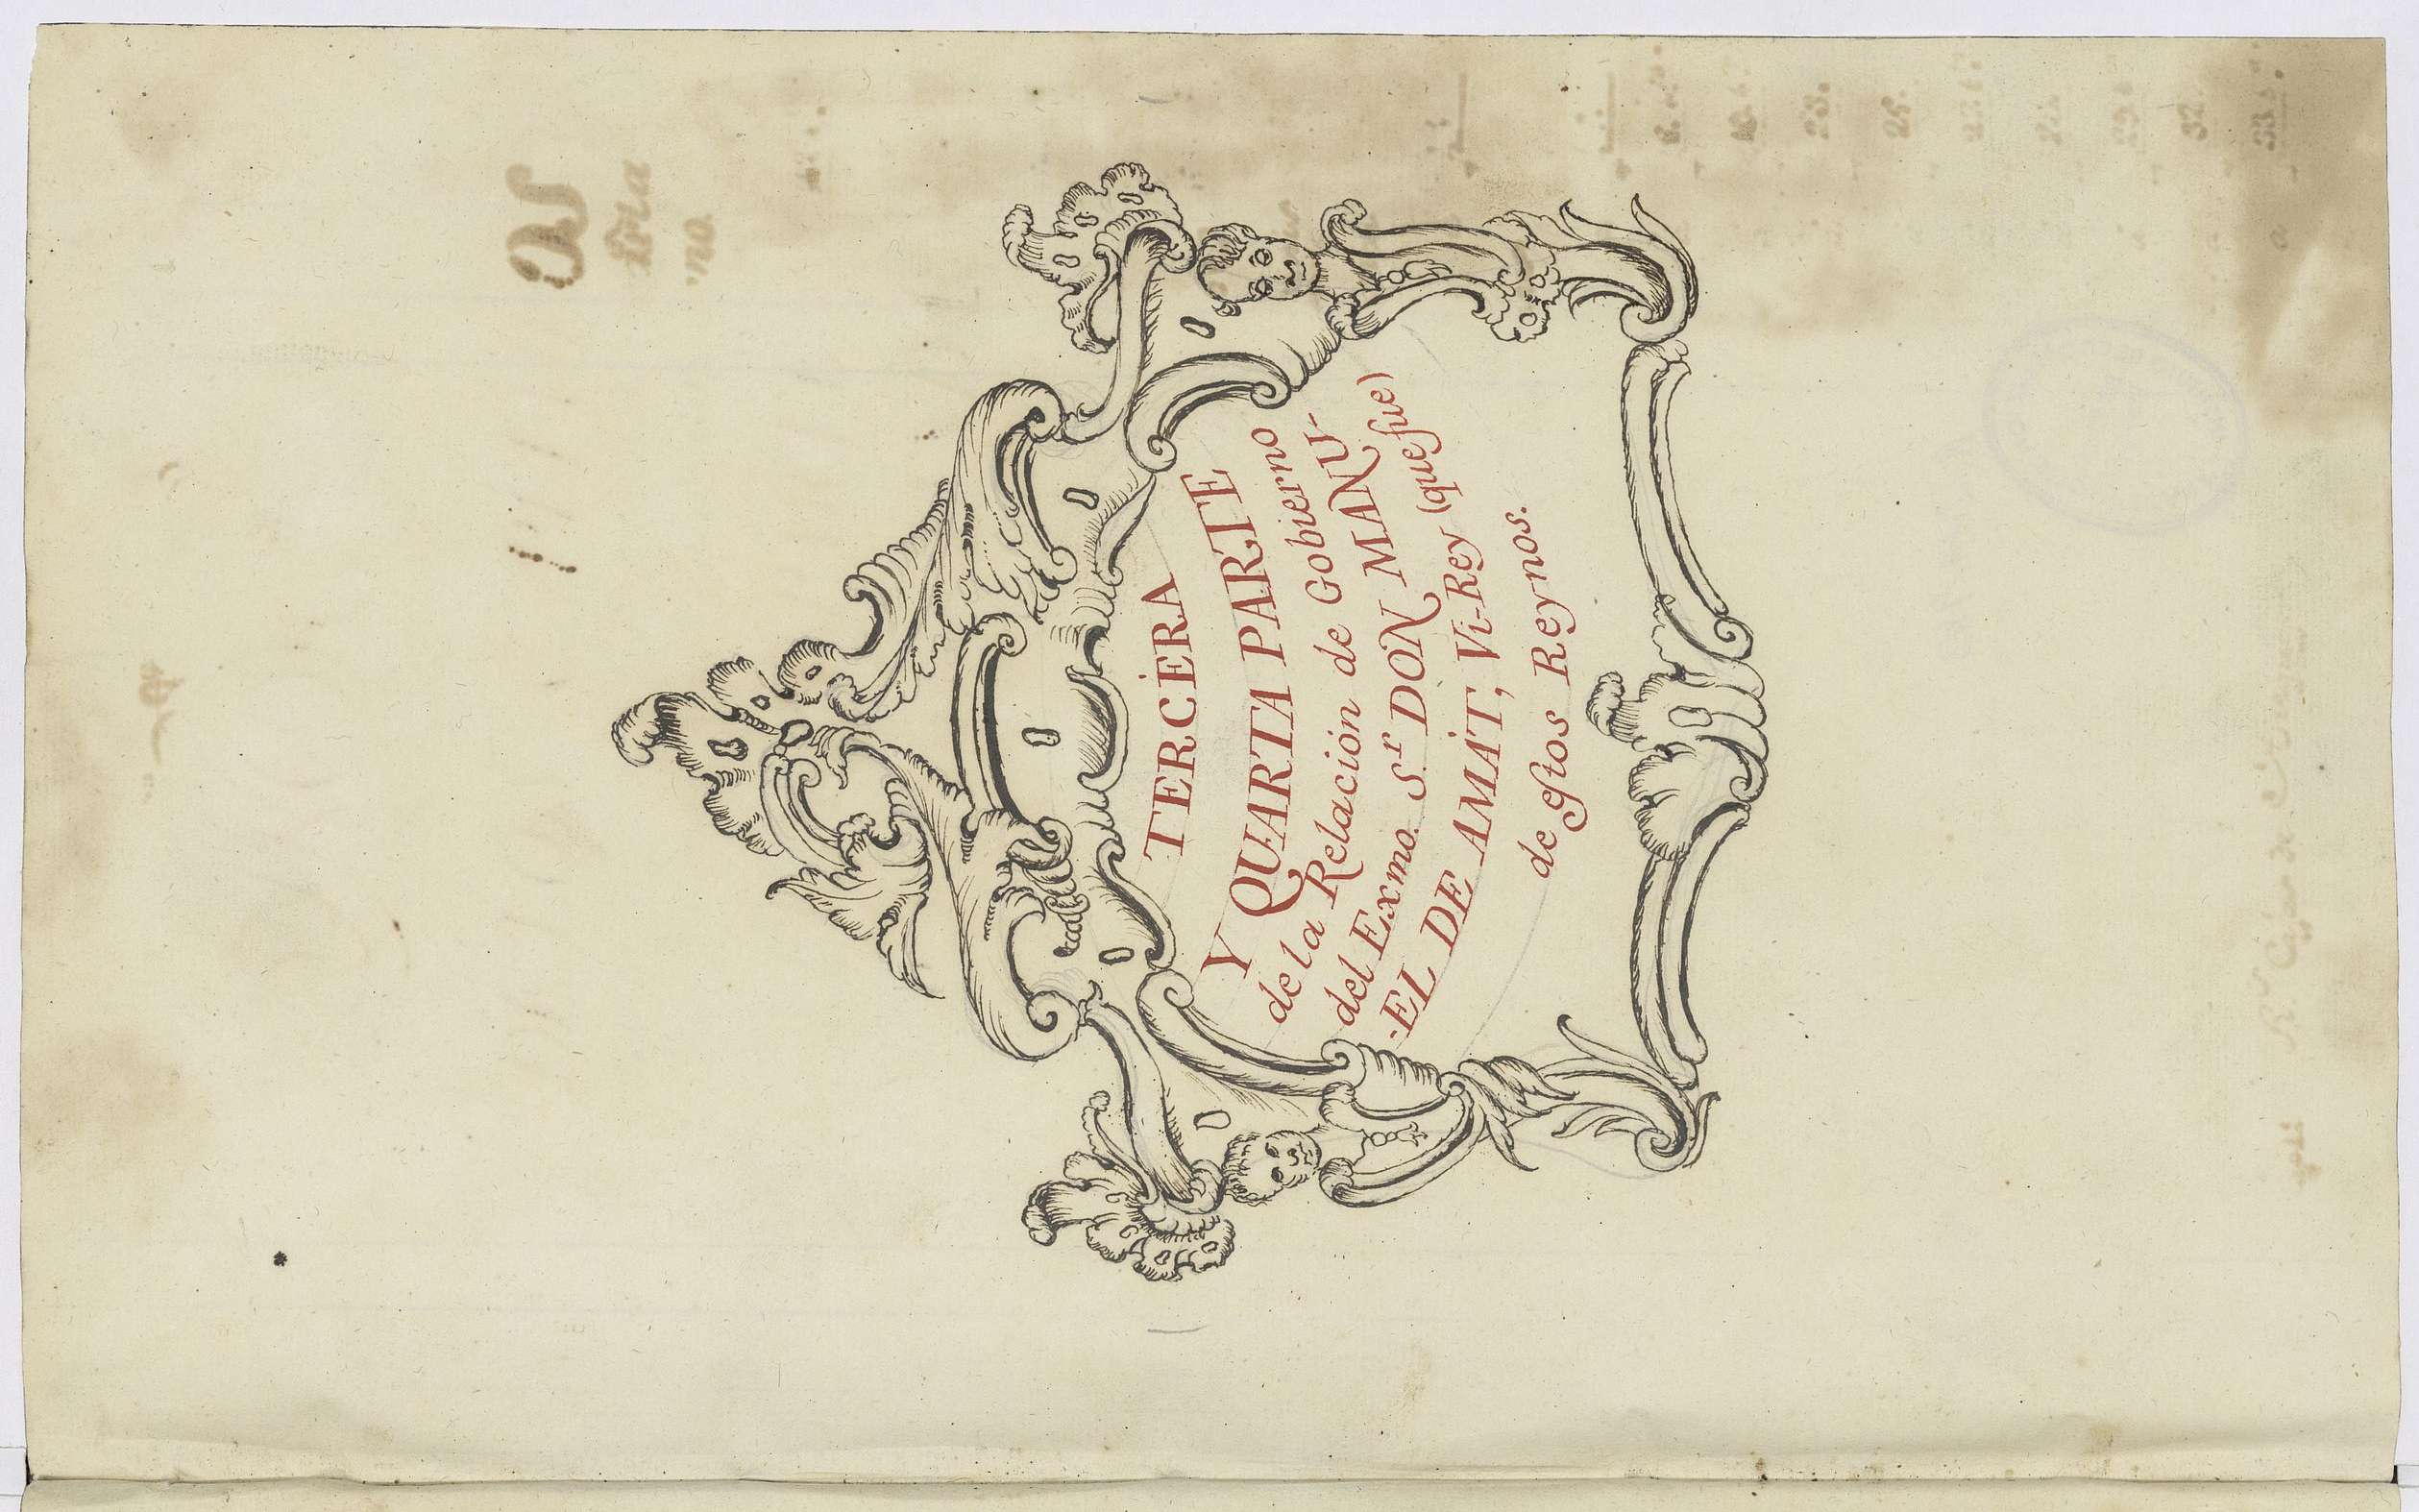 TERCERA
Y QUARTA PARTE
de la Relación de Gobierno
del Exmo. S.r DON MANU-
EL DE AMÁT, Vi-Rey (que fue)
de eſtos Reynos.